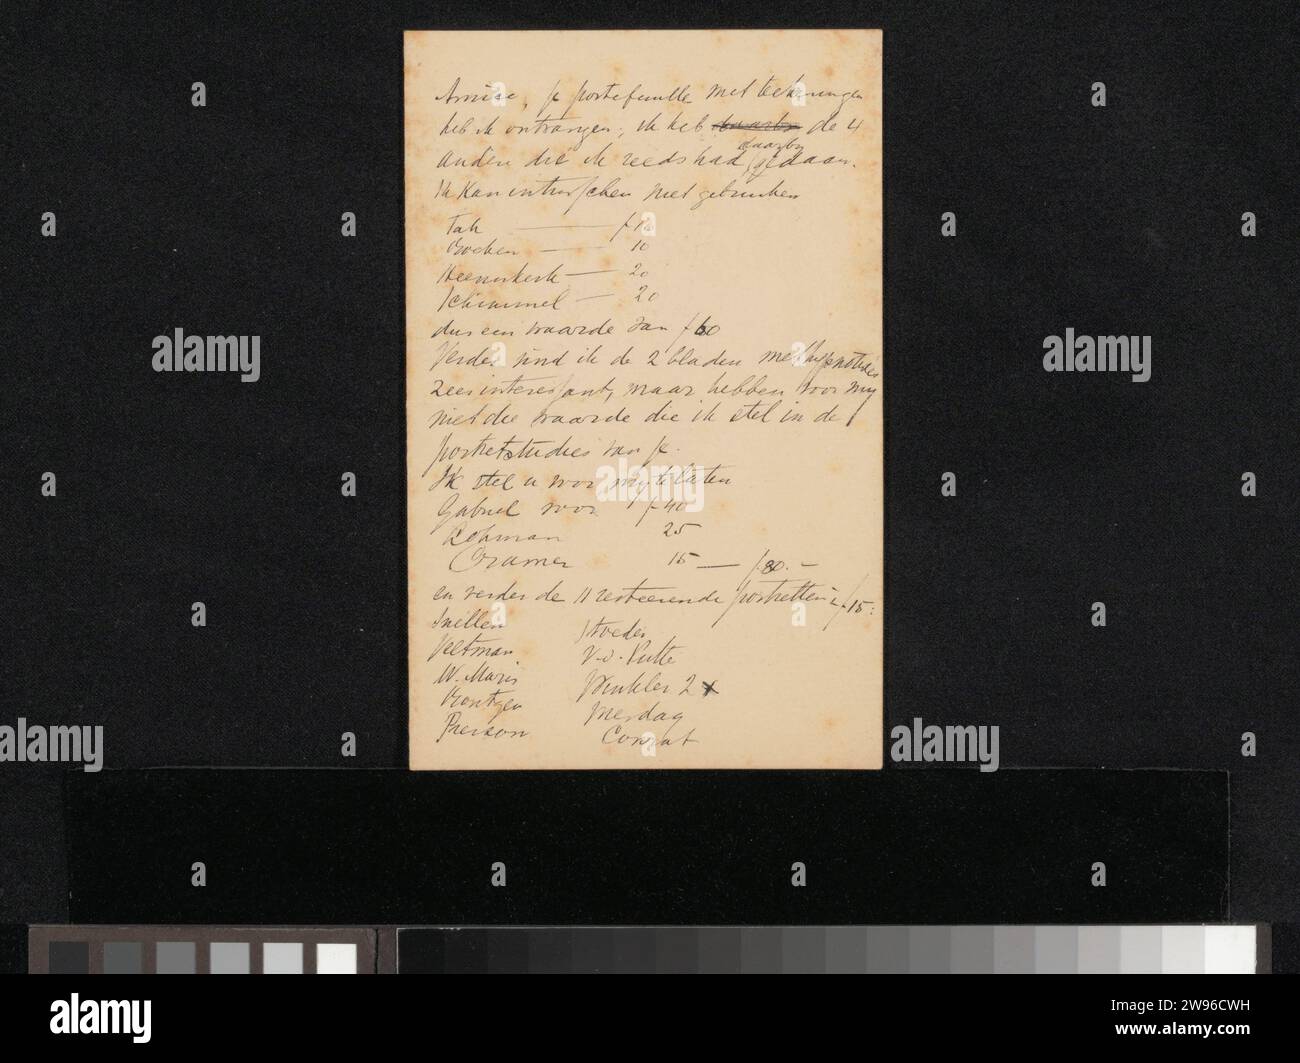 Amice, je portefeuille met teekeningen
heb ik ontvangen; ik heb de 4
andere die ik reeds had daarby gedaan.
Ik kan intusschen niet gebruiken
Tak — f 10
10
Heemskerk — 20
Schimmel — 20
dus een waarde van f 60
Verder vind ik de 2 bladen met
zeer interessant, maar hebben voor my
niet die waarde die ik stel in de
portretstudies van je.
Ik stel u voor my te laten
Gabriel voor f 40
Lohman 25
Cramer 15 — f 80.—
en verder de 11 resteerende portretten à f 15:
Snellen Stroeder
Veltman V.d. Putte
W. Maris Winkler 2 x
Röntgen Mesdag
Pierson Conrat
alamy
a
Image ID: 2W96CWH
www.alamy.com